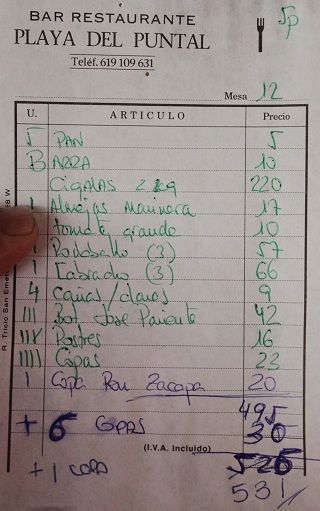 BAR RESTAURANTE
PLAYA DEL PUNTAL
Teléf. 619 109 631
5p
Mesa 12
U. ARTICULO Precio
5 PAN 5
BARRA 10
Cigalas 2 kg 220
1 Almejas Marinera 17
1 tomate grande 10
1 Rodaballo (3) 57
1 Cabracho (3) 66
4 Cañas/claras 9
III Bot. Jose Pariente 42
Postres 16
IIII Copas 23
1 Copa Ron Zacapa 20
495
+ 6 COPAS 30
(I.V.A. Incluido)
526
+ 1 COPA
531